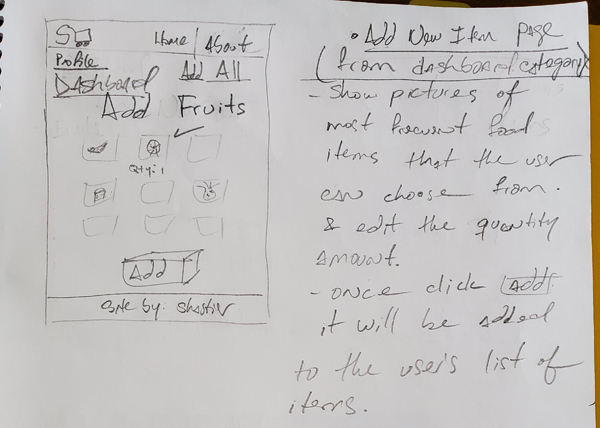 S
Home | About
Profile
Dashboard
Add All
Add Fruits
Qty: 1
Add
Site by:
• Add New Item page
(from dashboard category)
- Show pictures of
most frecuent food
items that the user
can choose from.
& edit the quantity
amount.
- once click Add
it will be added
to the user's list of
items.